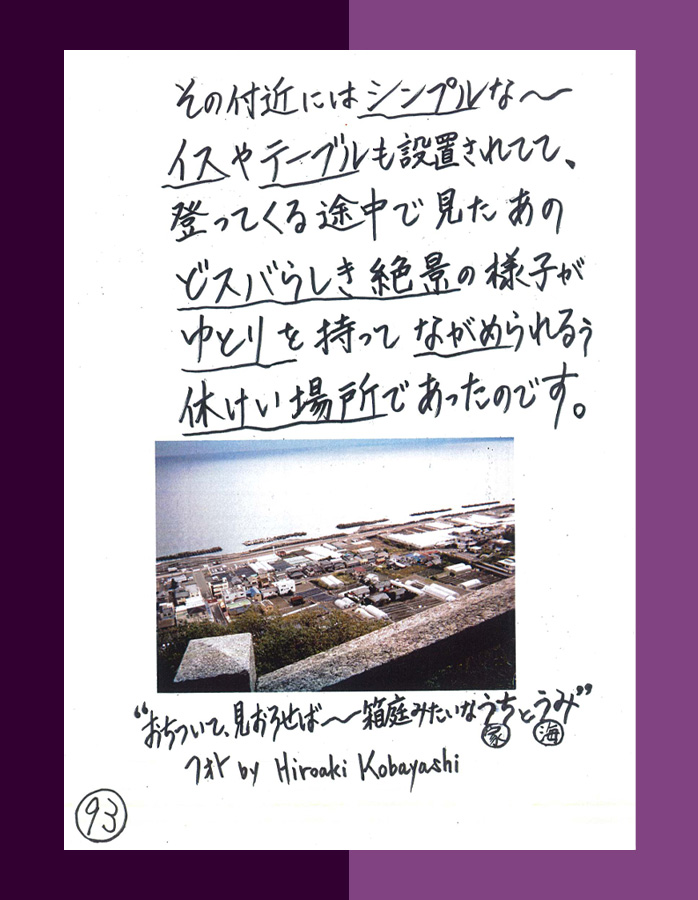 その付近にはシンプルな〜
イスやテーブルも設置されてて、
登ってくる途中で見たあの
どスバらしき絶景の様子が
ゆとりを持ってながめられるぅ
休けい場所であったのです。
“おちついて、見おろせば〜〜箱庭みたいなうちとうみ”
家 海
フォト by Hiroaki Kobayashi
93